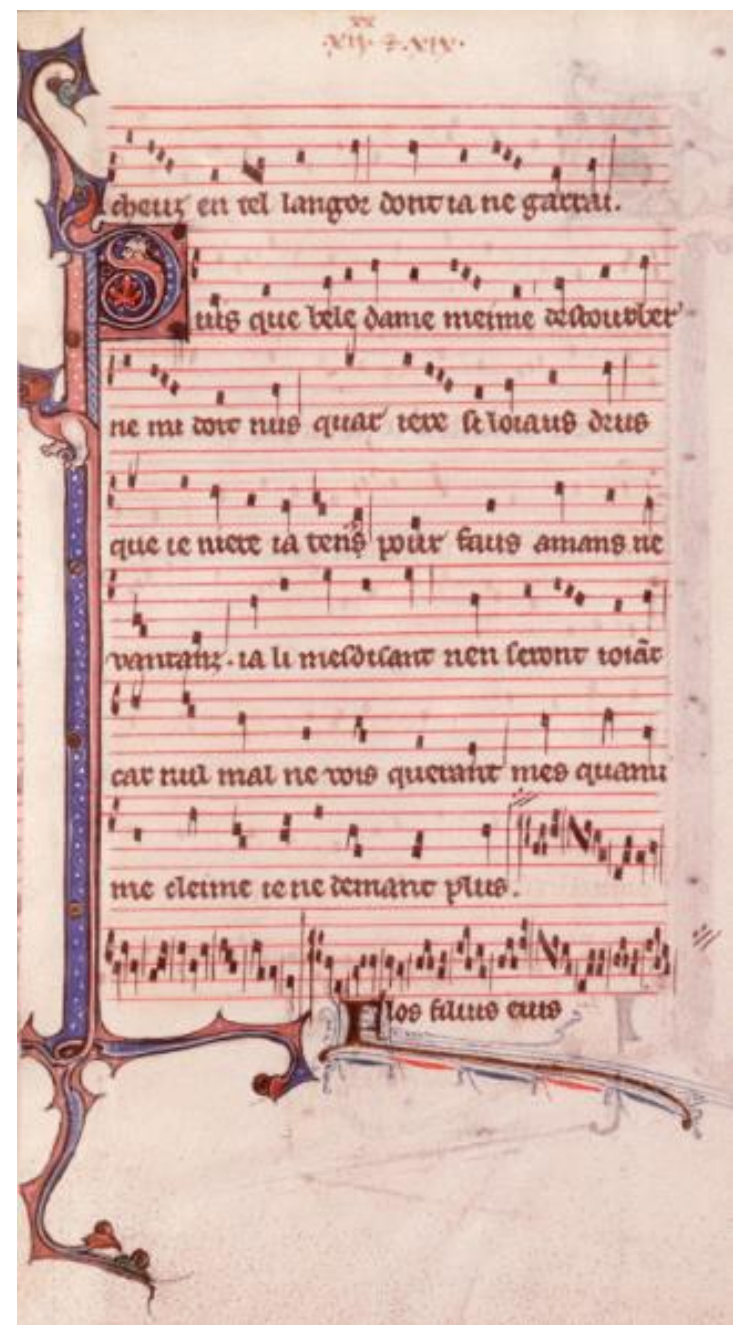 xx
.XII. 7.XIX.
cheuz en tel langor dont ia ne garrai.
Puis que bele dame meime destourber
ne mi doit nus quar iere si loiaus drus
que ie niere ia tens pour faus amans ne
vantanz. ia li mesdisant nen seront ioiāt
car nul mal ne vois querant mes quami
me cleime ie ne demant plus.
Flos filius eius